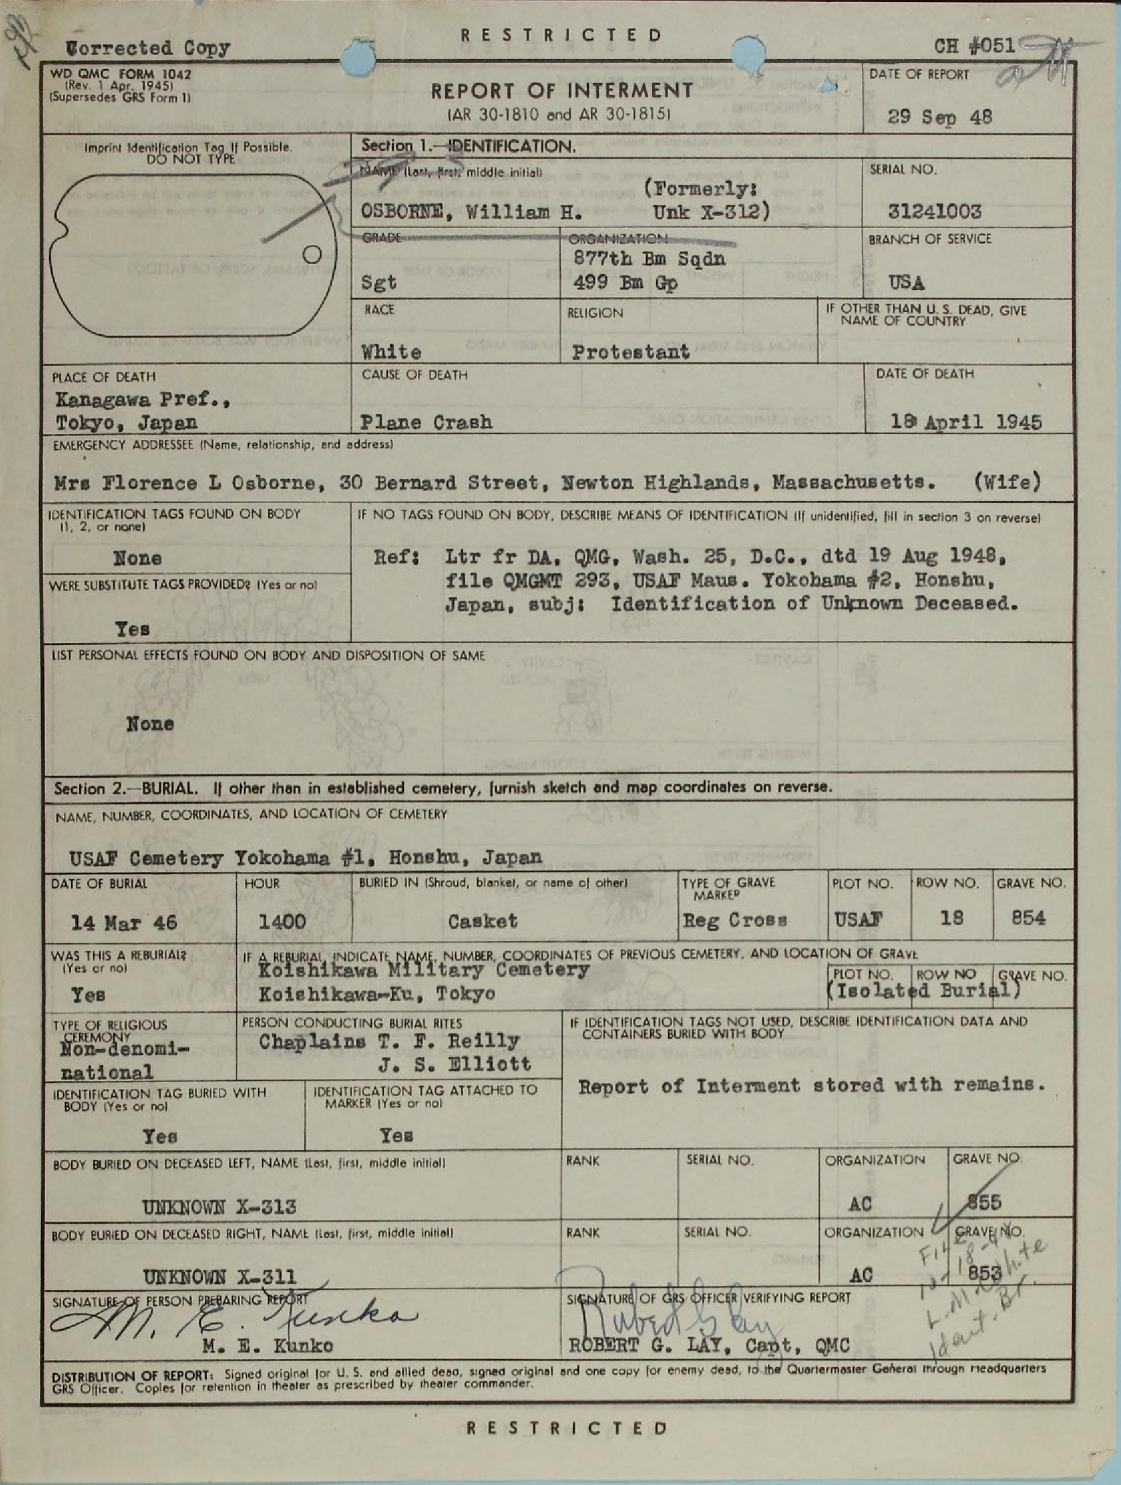 Corrected Copy
RESTRICTED
CH #051
WD QMC FORM 1042
(Rev. 1 Apr. 1945)
(Supersedes GRS Form 1)
REPORT OF INTERMENT
(AR 30-1810 and AR 30-1815)
DATE OF REPORT
29 Sep 48
Imprint Identification Tag If Possible.
DO NOT TYPE
Section 1.—IDENTIFICATION.
NAME (Last, first, middle initial)
(Formerly:
OSBORNE, William H. Unk X-312)
SERIAL NO.
31241003
GRADE
Sgt
ORGANIZATION
877th Bm Sqdn
499 Bm Gp
BRANCH OF SERVICE
USA
RACE
White
RELIGION
Protestant
IF OTHER THAN U. S. DEAD, GIVE
NAME OF COUNTRY
PLACE OF DEATH
Kanagawa Pref.,
Tokyo, Japan
CAUSE OF DEATH
Plane Crash
DATE OF DEATH
18 April 1945
EMERGENCY ADDRESSEE (Name, relationship, and address)
Mrs Florence L Osborne, 30 Bernard Street, Newton Highlands, Massachusetts. (Wife)
IDENTIFICATION TAGS FOUND ON BODY
(1, 2, or none)
None
WERE SUBSTITUTE TAGS PROVIDED? (Yes or no)
Yes
IF NO TAGS FOUND ON BODY, DESCRIBE MEANS OF IDENTIFICATION (If unidentified, fill in section 3 on reverse)
Ref: Ltr fr DA, QMG, Wash. 25, D.C., dtd 19 Aug 1948,
file QMGMT 293, USAF Maus. Yokohama #2, Honshu,
Japan, subj: Identification of Unknown Deceased.
LIST PERSONAL EFFECTS FOUND ON BODY AND DISPOSITION OF SAME
None
Section 2.—BURIAL. If other than in established cemetery, furnish sketch and map coordinates on reverse.
NAME, NUMBER, COORDINATES, AND LOCATION OF CEMETERY
USAF Cemetery Yokohama #1, Honshu, Japan
DATE OF BURIAL
14 Mar 46
HOUR
1400
BURIED IN (Shroud, blanket, or name of other)
Casket
TYPE OF GRAVE
MARKER
Reg Cross
PLOT NO.
USAF
ROW NO.
18
GRAVE NO.
854
WAS THIS A REBURIAL?
(Yes or no)
Yes
IF A REBURIAL, INDICATE NAME, NUMBER, COORDINATES OF PREVIOUS CEMETERY, AND LOCATION OF GRAVE
Koishikawa Military Cemetery
Koishikawa-Ku, Tokyo
PLOT NO. ROW NO GRAVE NO.
(Isolated Burial)
TYPE OF RELIGIOUS
CEREMONY
Non-denomi-
national
PERSON CONDUCTING BURIAL RITES
Chaplains T. F. Reilly
J. S. Elliott
IF IDENTIFICATION TAGS NOT USED, DESCRIBE IDENTIFICATION DATA AND
CONTAINERS BURIED WITH BODY
Report of Interment stored with remains.
IDENTIFICATION TAG BURIED WITH
BODY (Yes or no)
Yes
IDENTIFICATION TAG ATTACHED TO
MARKER (Yes or no)
Yes
BODY BURIED ON DECEASED LEFT, NAME (Last, first, middle initial)
UNKNOWN X-313
RANK
SERIAL NO.
ORGANIZATION
AC
GRAVE NO.
855
BODY BURIED ON DECEASED RIGHT, NAME (Last, first, middle initial)
UNKNOWN X-311
RANK
SERIAL NO.
ORGANIZATION
AC
GRAVE NO.
853
File
L. M. White
Ident. Br.
SIGNATURE OF PERSON PREPARING REPORT
M. E. Kunko
M. E. Kunko
SIGNATURE OF GRS OFFICER VERIFYING REPORT
Robert G Lay
ROBERT G. LAY, Capt, QMC
DISTRIBUTION OF REPORT: Signed original for U. S. and allied dead, signed original and one copy for enemy dead, to the Quartermaster General through Headquarters
GRS Officer. Copies for retention in theater as prescribed by theater commander.
RESTRICTED